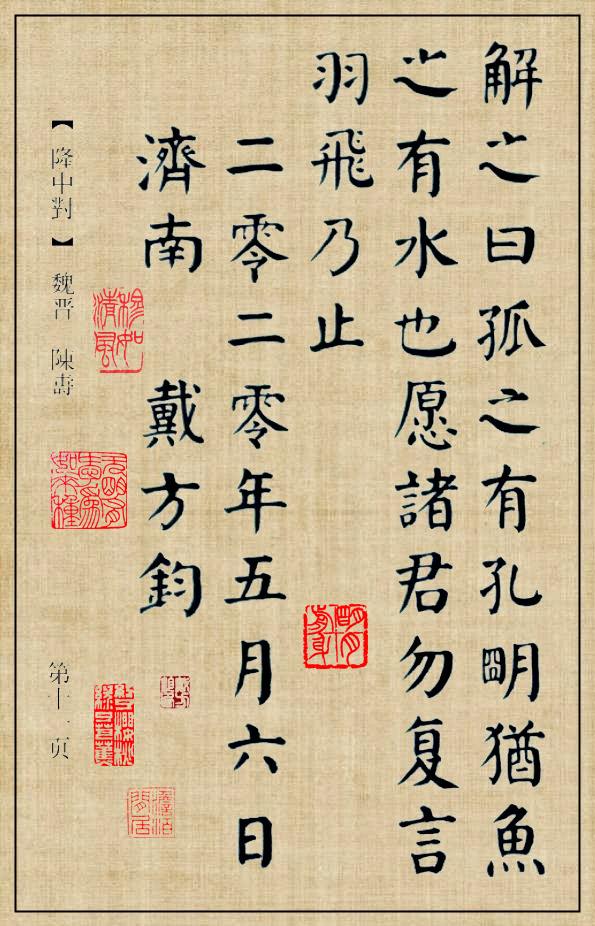 解之曰孤之有孔明猶魚
之有水也愿諸君勿复言
羽飛乃止
二零二零年五月六日
濟南 戴方鈞
【隆中對】魏晋 陳壽
第十一页
穆如清風